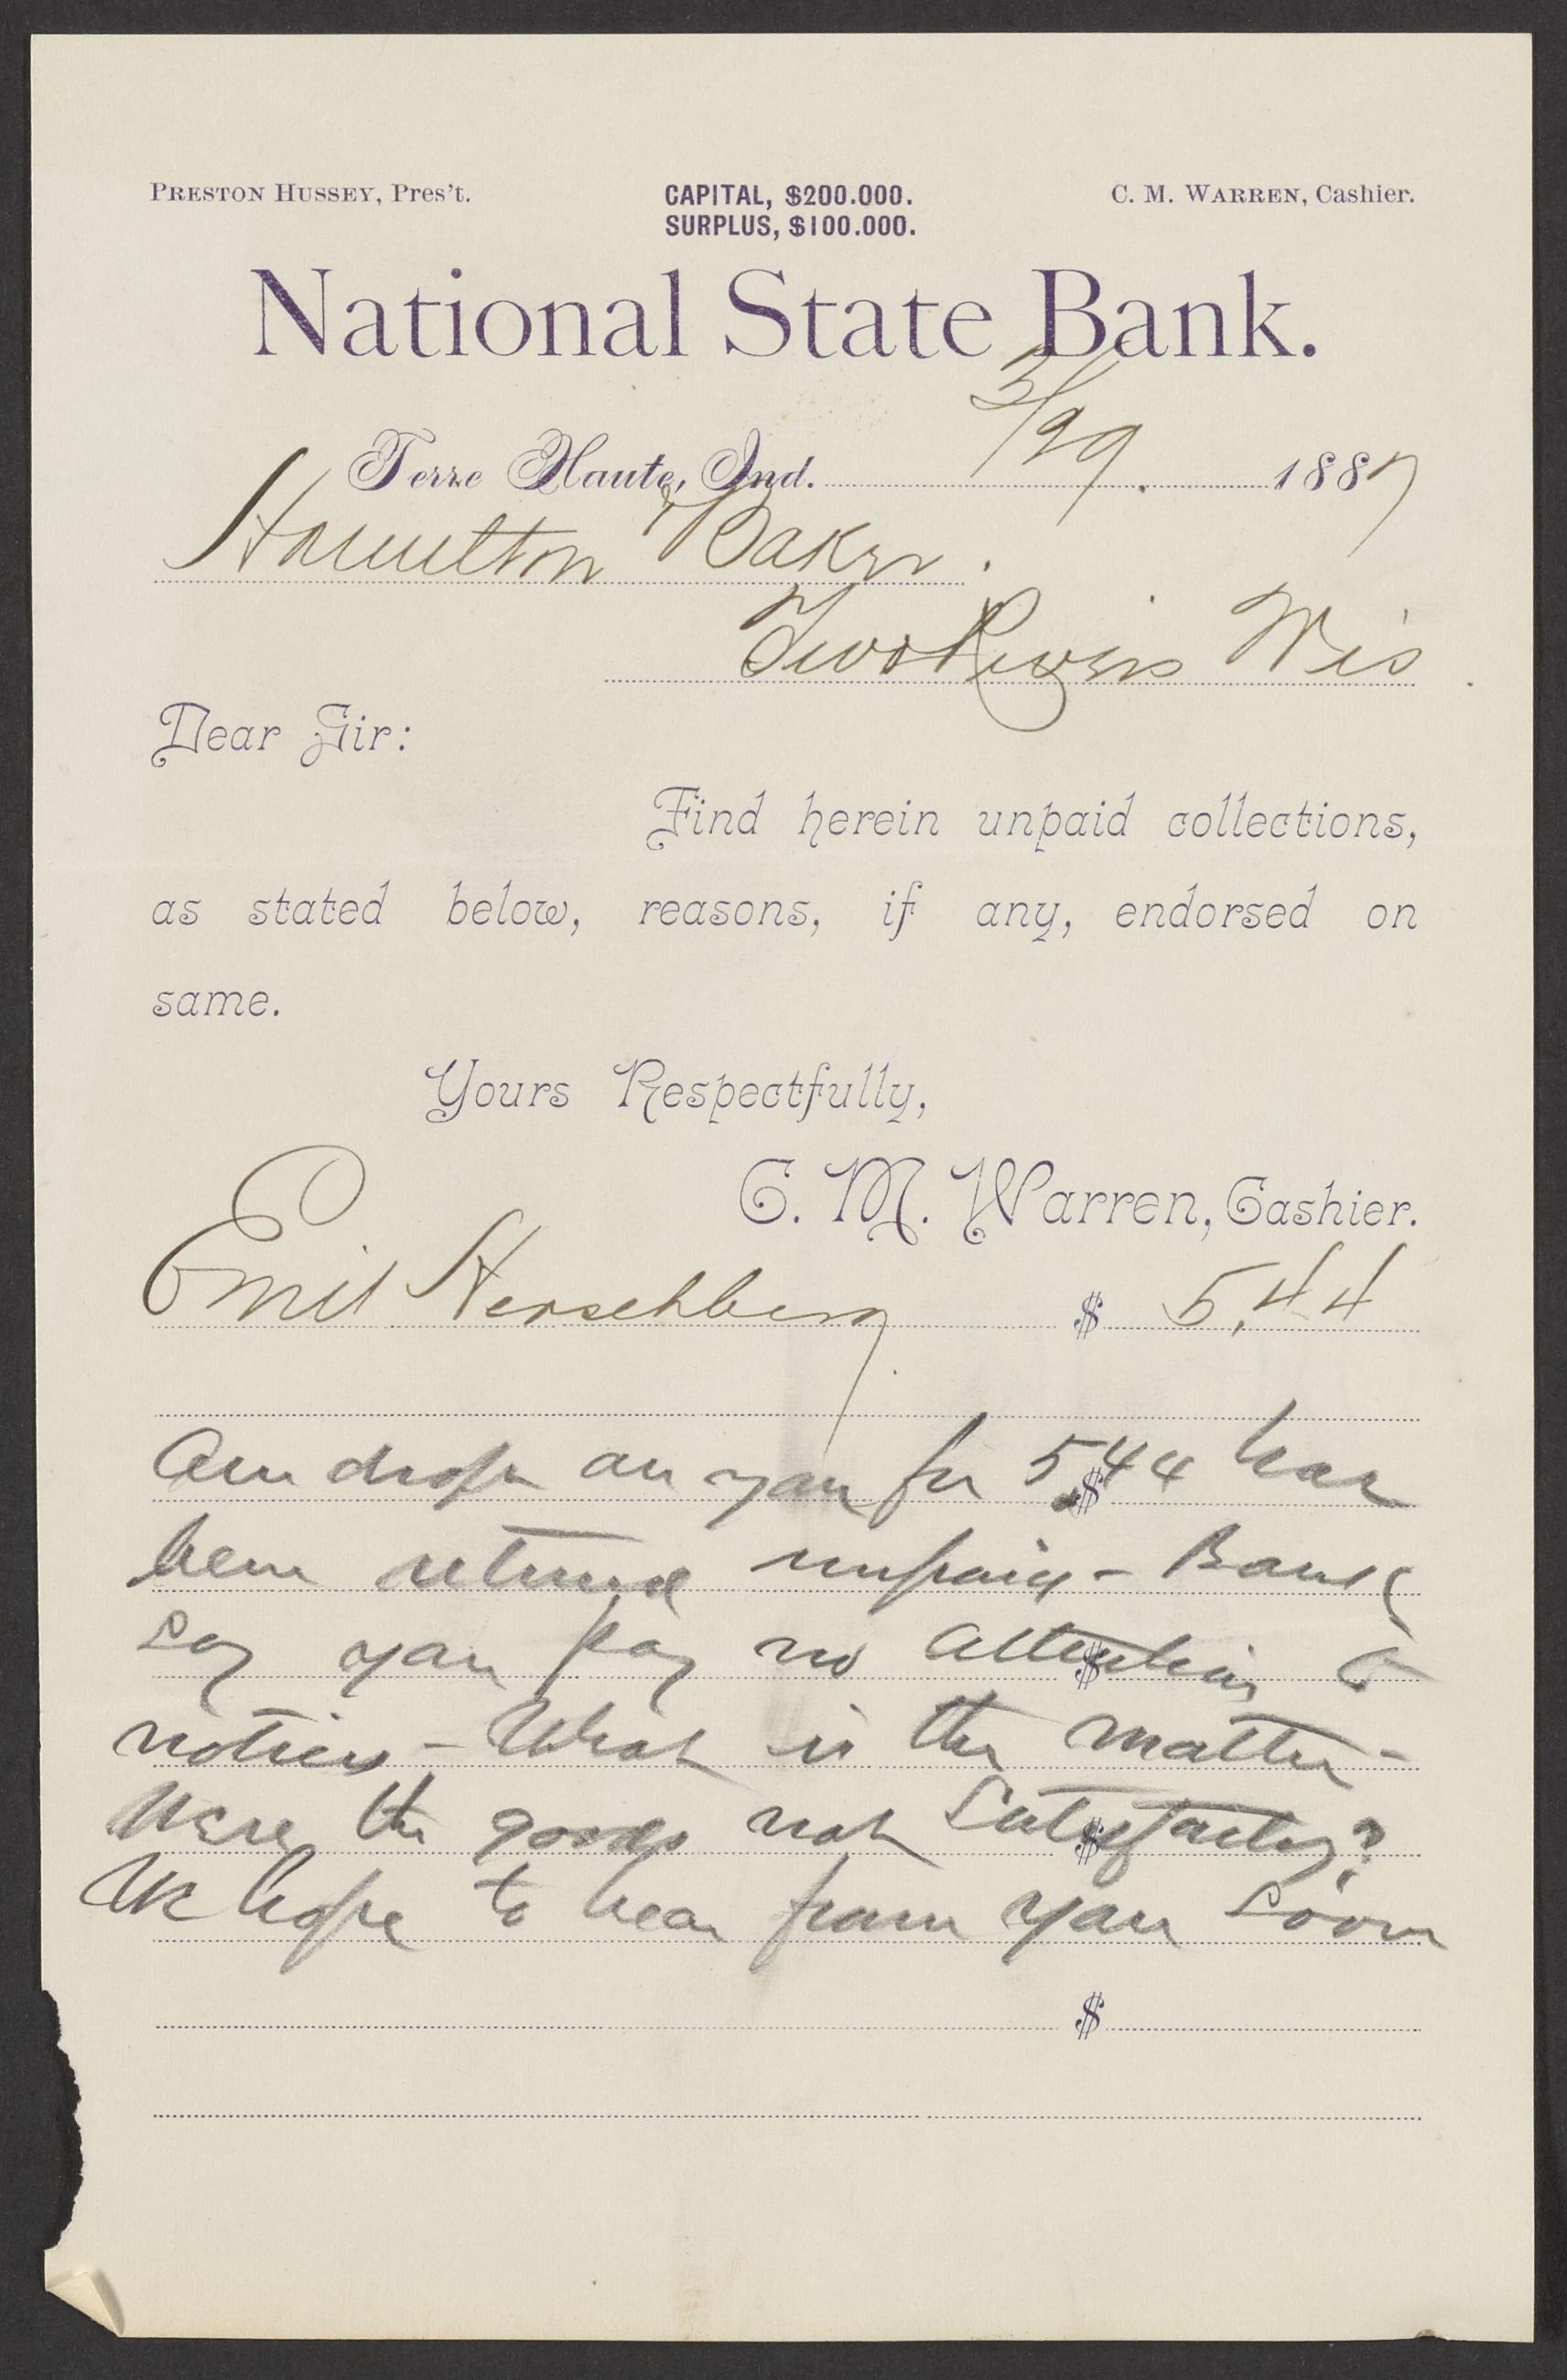 PRESTON HUSSEY, Pres't.
CAPITAL, $200.000.
SURPLUS, $100.000.
C. M. WARREN, Cashier.
National State Bank.
Terre Haute, Ind. 3/29. 1887
Hamilton & Baker.
Two Rivers Wis
Dear Sir:
Find herein unpaid collections,
as stated below, reasons, if any, endorsed on
same.
Yours Respectfully,
C. M. Warren, Cashier.
Emil Herschberg $ 5.44
Our draft on you for 5.44 has
been returned unpaid - Bank
say you pay no attention to
notices - What is the matter -
Were the goods not Satisfactory?
We hope to hear from you soon
$